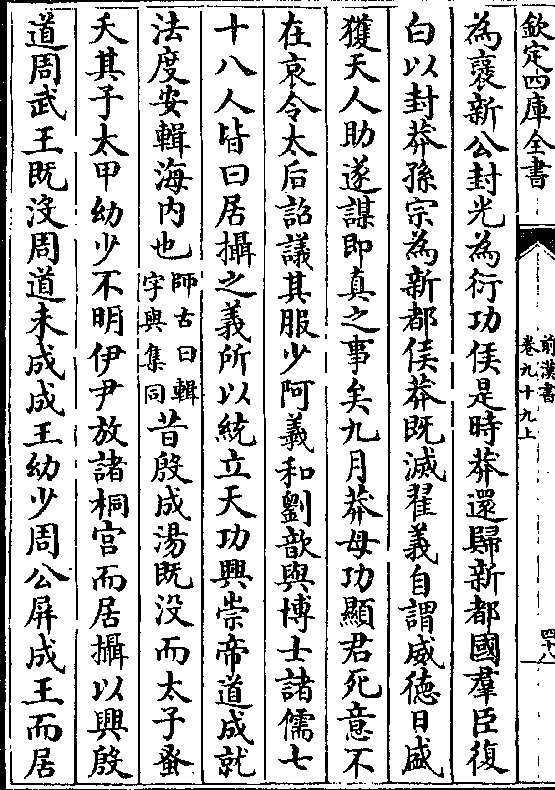 欽定四庫全書
前漢書
卷九十九上
四十八
為襃新公封光為衍功侯是時莽還歸新都國羣臣復
白以封莽孫宗為新都侯莽既滅翟義自謂威德日盛
獲天人助遂謀即真之事矣九月莽母功顯君死意不
在哀令太后詔議其服少阿羲和劉歆與博士諸儒七
十八人皆曰居攝之義所以統立天功興崇帝道成就
法度安輯海内也師古曰輯字與集同昔殷成湯既没而太子蚤
夭其子太甲幼少不明伊尹放諸桐宫而居攝以興殷
道周武王既没周道未成成王幼少周公屏成王而居